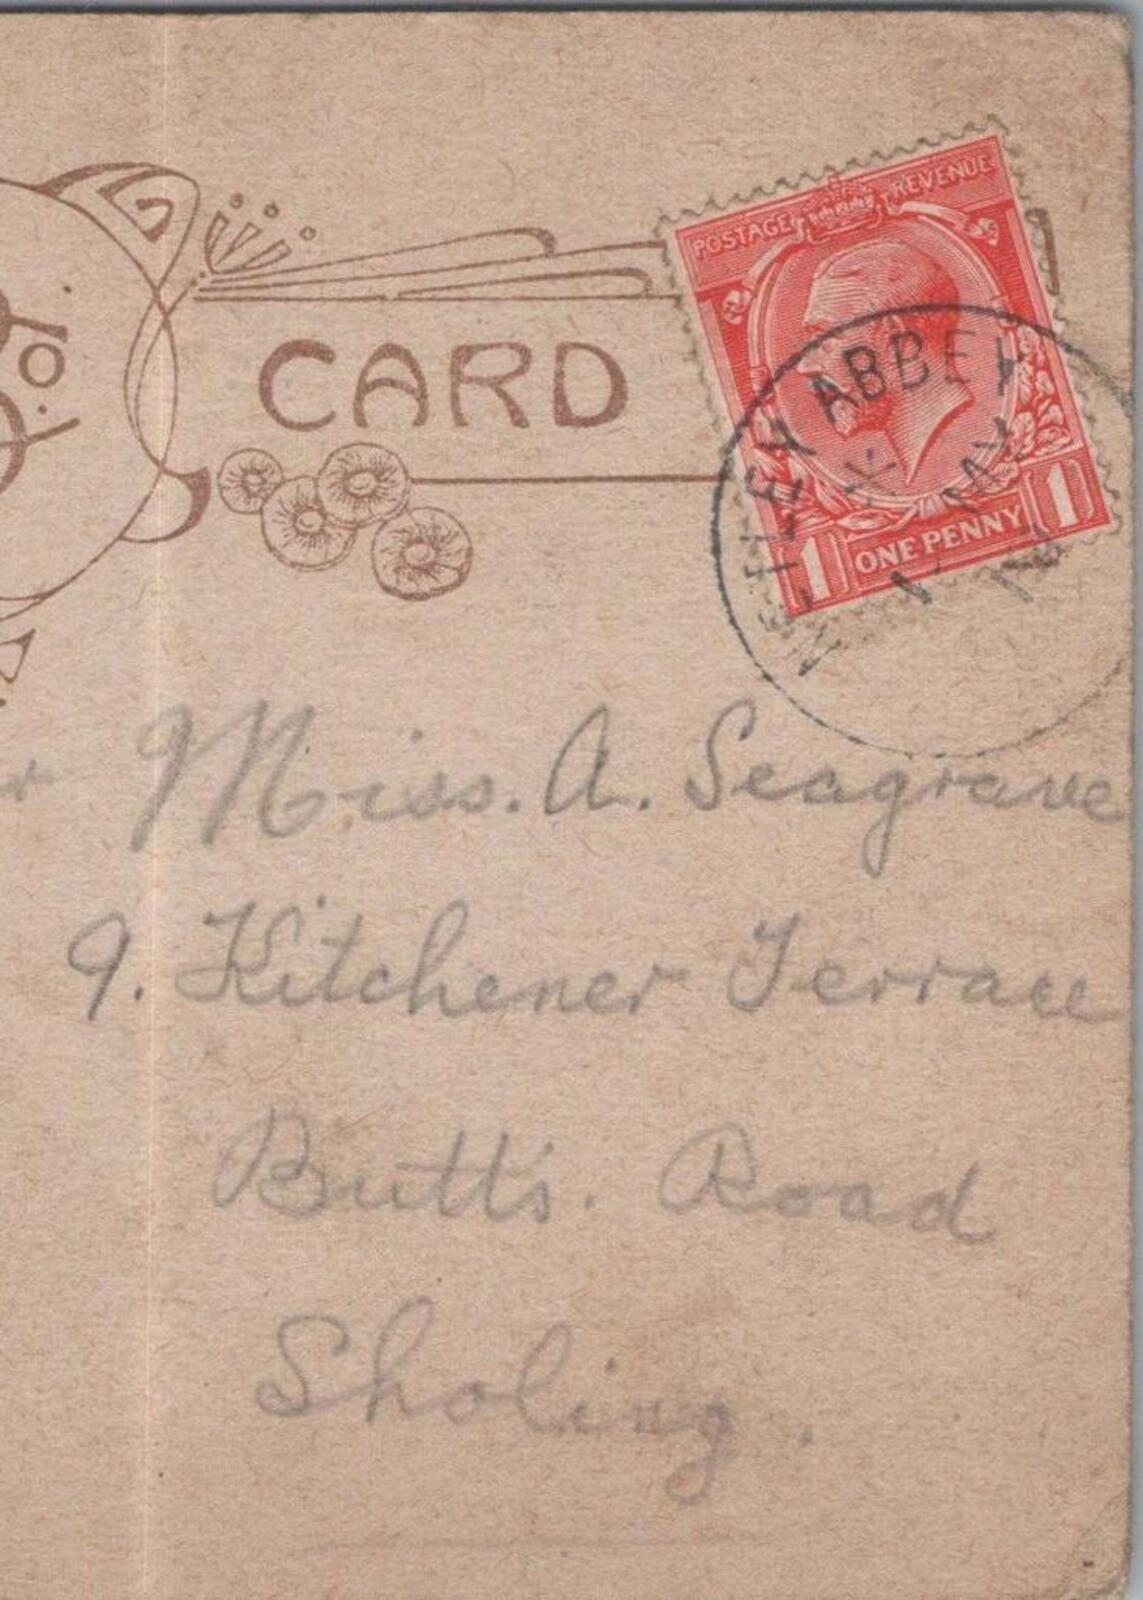 CARD
POSTAGE REVENUE
1 ONE PENNY 1
NETLEY ABBEY
MY
Miss. A. Seagrave
9. Kitchener Terrace
Butt's. Road
Sholing.